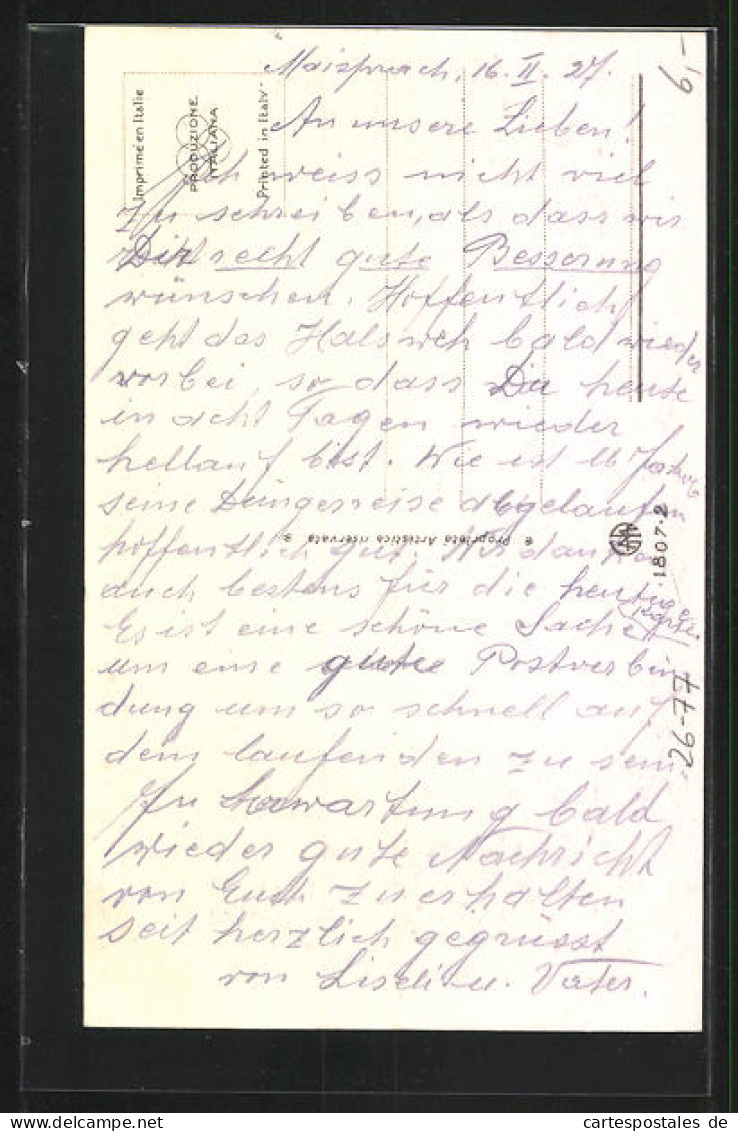 Maisprach, 16. II. 27.
An unsere Lieben!
Ich weiss nicht viel
zu schreiben, als dass wir
Dir recht gute Besserung
wünschen. Hoffentlich
geht das Halsweh bald wieder
vorbei, so dass Du heute
in acht Tagen wieder
hellauf bist. Wie ist
seine abgelaufen
hoffentlich gut. Wir danken
auch bestens für die heutige
Karte.
Es ist eine schöne Sache
um eine gute Postverbin
dung um so schnell auf
dem laufenden zu sein.
In Erwartung bald
wieder gute Nachricht
von Euch zu erhalten
seit herzlich gegrüsst
von Liseli u. Vater.
Imprimé en Italie
PRODUZIONE
ITALIANA
Printed in Italy
Proprietà Artistica riservata
1807-2
6,-
26-77
cartespostales de